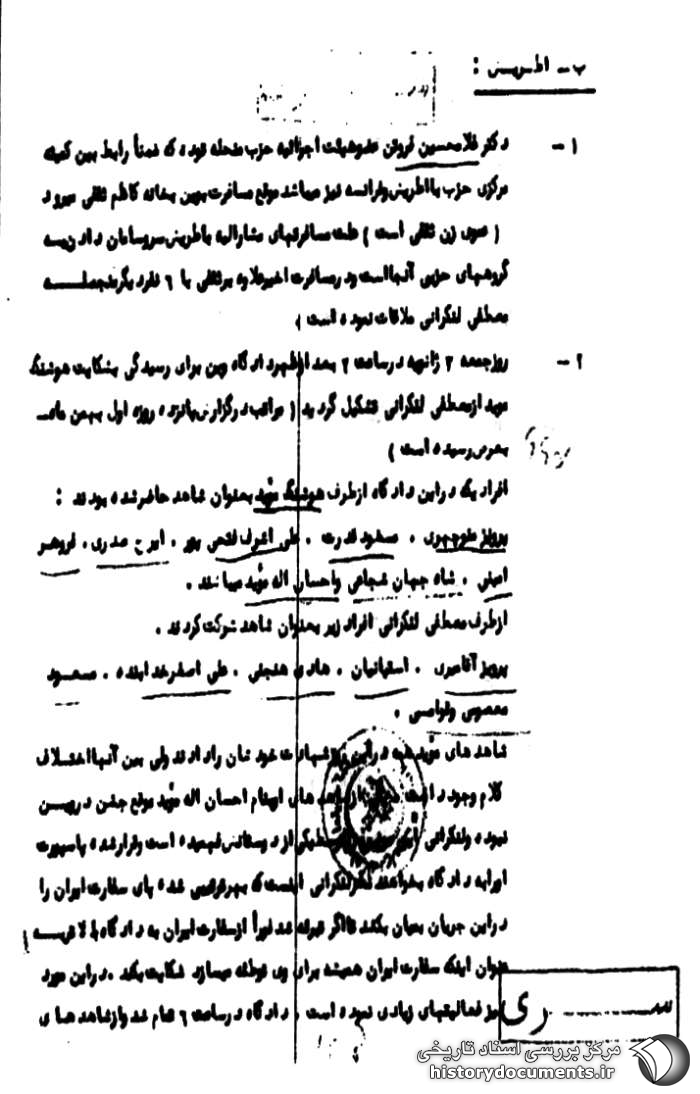 ب - اطریش :
۱- دکتر غلامحسین فروتن عضو هیئت اجرائیه حزب منحله توده که ضمناً رابط بین کمیته
مرکزی حزب با اطریش و فرانسه نیز میباشد موقع مسافرت بوین بخانه کاظم ثقفی میرود
( عموی زن ثقفی است ) علت مسافرتهای مشارالیه باطریش سروسامان دادن به
گروههای حزبی آنها است و در مسافرت اخیر علاوه بر ثقفی با ۶ نفر دیگر منجمله
مصطفی لنکرانی ملاقات نموده است .
۲- روز جمعه ۲ ژانویه در ساعت ۲ بعد از ظهر دادگاه وین برای رسیدگی بشکایت هوشنگ
موید از مصطفی لنکرانی تشکیل گردید ( مراتب در گزارش پانزده روزه اول بهمن ماه
بعرض رسیده است )
افراد یکه در این دادگاه از طرف هوشنگ مؤید بعنوان شاهد حاضر شده بودند :
پرویز منوچهری . مسعود قدرت . علی اشرف فتحی پور . ایرج صدری . فروهر
امینی . شاه جهان شجاعی و احسان اله مؤید میباشند .
از طرف مصطفی لنکرانی افراد زیر بعنوان شاهد شرکت کردند .
پرویز آقامیری . استپانیان . هادی . علی اصغر خدابنده . مسعود
معصومی و
شاهد های مؤید همه در این شهادت خودشان را دادند ولی بین آنها اختلاف
کلام وجود داشت های ایهام احسان اله مؤید موقع جشن در وین
نبوده و لنکرانی یکی از دوستانش فهمیده است و قرار شده پاسپورت
او را به دادگاه بخوانند فکر لنکرانی اینست که بهر ترتیبی شده پای سفارت ایران را
در این جریان بمیان بکشد تا اگر تبرئه شد فوراً از سفارت ایران به دادگاه
عنوان اینکه سفارت ایران همیشه برای وی توطئه میسازد شکایت بکند . در این مورد
نیز فعالیتهای زیادی نموده است . دادگاه در ساعت ۶ تمام شد و از شاهد های
سری
مرکز بررسی اسناد تاریخی
historydocuments.ir